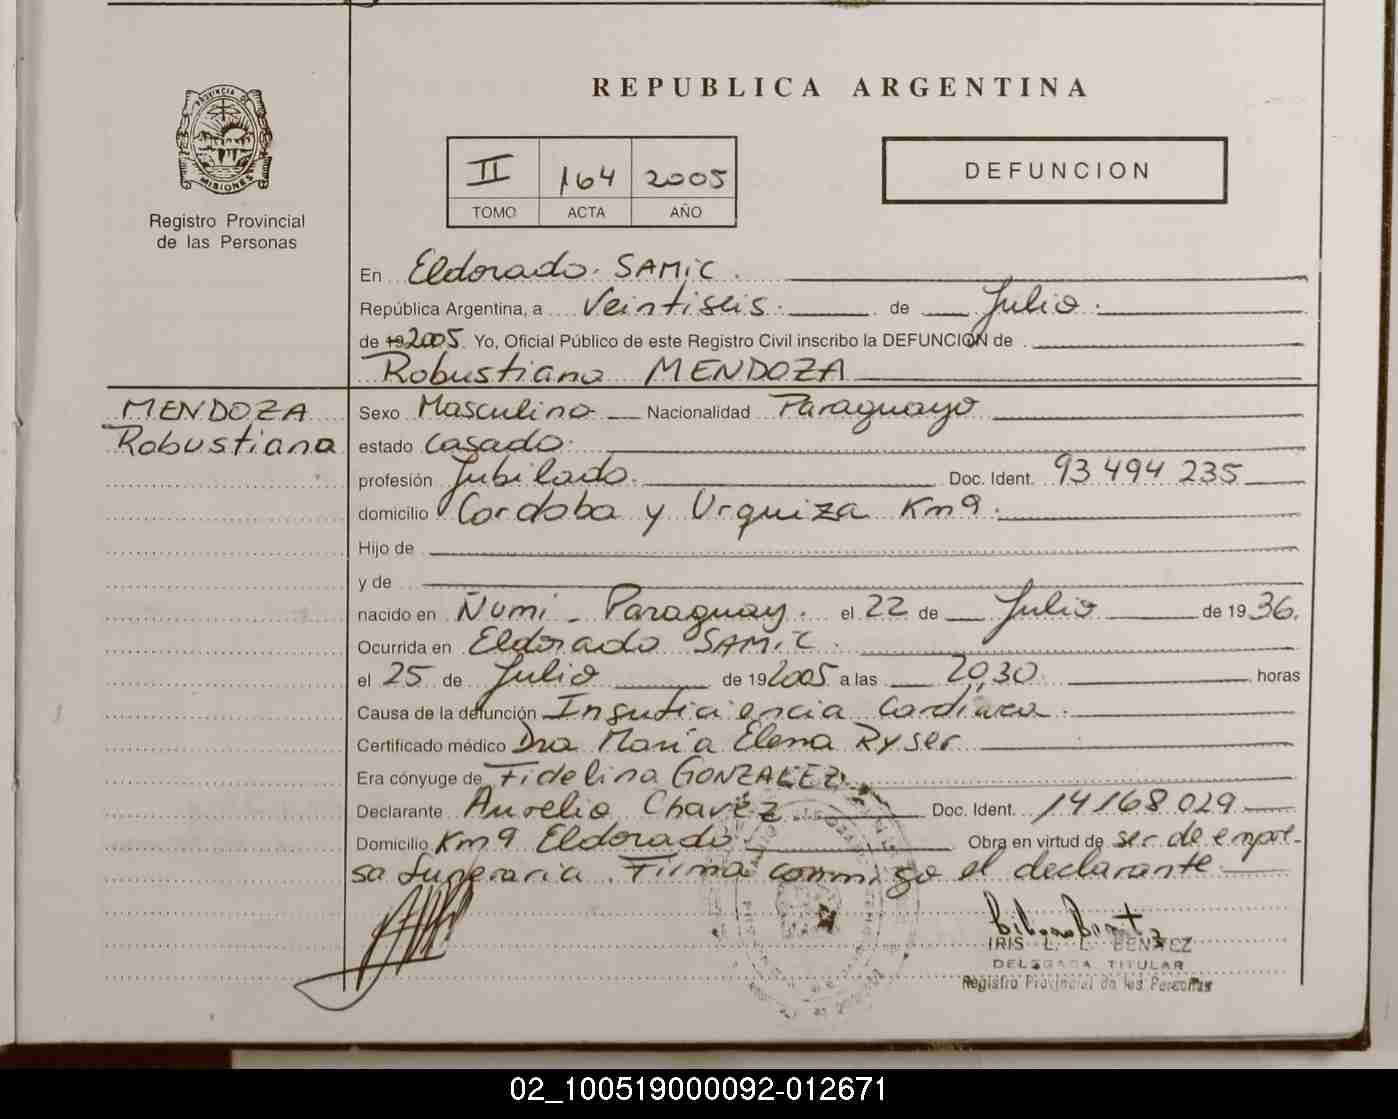 PROVINCIA DE
MISIONES
Registro Provincial
de las Personas
REPUBLICA ARGENTINA
II 164 2005
TOMO ACTA AÑO
DEFUNCION
En Eldorado. SAMIC.
República Argentina, a Veintiseis. de Julio.
de 19 2005. Yo, Oficial Público de este Registro Civil inscribo la DEFUNCION de
Robustiano MENDOZA
MENDOZA
Robustiano
Sexo Masculino Nacionalidad Paraguayo
estado Casado.
profesión Jubilado. Doc. Ident. 93 494 235
domicilio Cordoba y Urquiza Km9.
Hijo de
y de
nacido en Ñumi - Paraguay. el 22 de Julio de 1936.
Ocurrida en Eldorado SAMIC.
el 25 de Julio de 19 2005 a las 20,30 horas
Causa de la defunción Insuficiencia Cardiaca.
Certificado médico Dra María Elena Ryser
Era cónyuge de Fidelina GONZALEZ.
Declarante Aurelio Chavez Doc. Ident. 14168.029
Domicilio Km9 Eldorado Obra en virtud de ser de empre-
sa funeraria. Firma conmigo el declarante
IRIS L. L. BENITEZ
DELEGADA TITULAR
Registro Provincial de las Personas
02_100519000092-012671